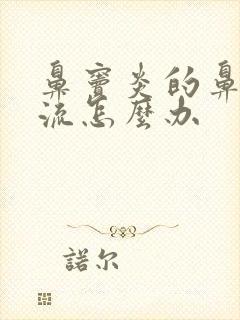 鼻窦炎的鼻
流怎麼办
諾尔